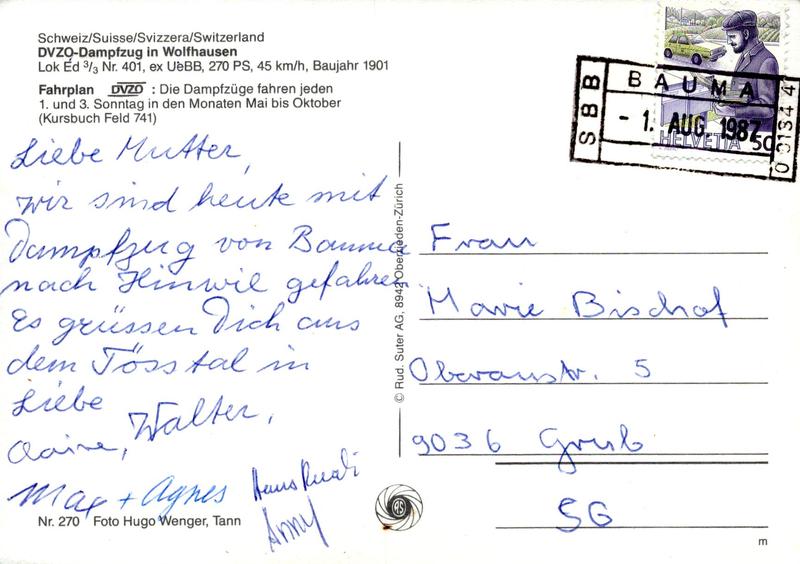 Schweiz/Suisse/Svizzera/Switzerland
DVZO-Dampfzug in Wolfhausen
Lok Ed 3/3 Nr. 401, ex UeBB, 270 PS, 45 km/h, Baujahr 1901
Fahrplan DVZO : Die Dampfzüge fahren jeden
1. und 3. Sonntag in den Monaten Mai bis Oktober
(Kursbuch Feld 741)
Liebe Mutter,
wir sind heute mit
Dampfzug von Bauma
nach Hinwil gefahren
Es grüssen Dich aus
dem Tösstal in
Liebe
Claire, Walter,
Max + Agnes Hans Ruedi
Anny
Nr. 270 Foto Hugo Wenger, Tann
© Rud. Suter AG, 8942 Oberrieden-Zürich
RS
SBB
BAUMA
- 1. AUG. 1987
HELVETIA 50
Frau
Marie Bischof
5
9036 Grub
SG
m